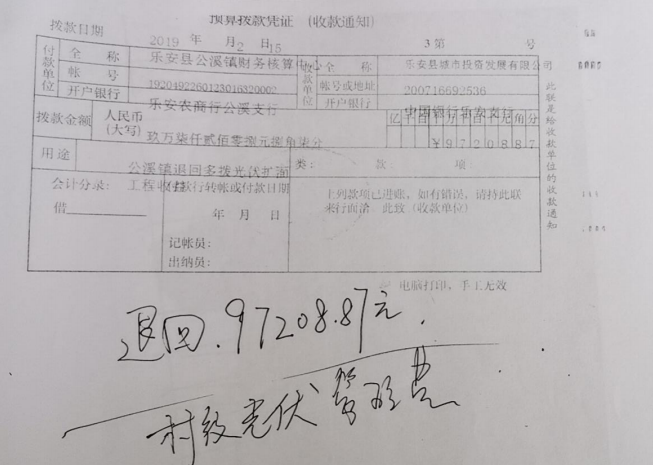 预算拨款凭证 (收款通知)
拨款日期 2019 年 月2 日15 3第 号
付款单位 全 称 乐安县公溪镇财务核算中心 收款单位 全 称 乐安县城市投资发展有限公司
帐 号 192049226012301632000 帐号或地址 200716692536
开户银行 乐安农商行公溪支行 开户银行 中国银行乐安支行
拨款金额 人民币(大写) 玖万柒仟贰佰零捌元捌角柒分 亿 千 百 十 万 千 百 十 元 角 分
¥9720887
用途 公溪镇退回多拨光伏扩面工程收 类: 款 项:
会计分录: 付款行转帐或付款日期 上列款项已进账,如有错误,请持此联
借 年 月 日 来行面洽 此致 (收款单位)
记帐员:
出纳员:
此联是给收款单位的收款通知
电脑打印,手工无效
退回.97208.87元.
村级光伏管理费